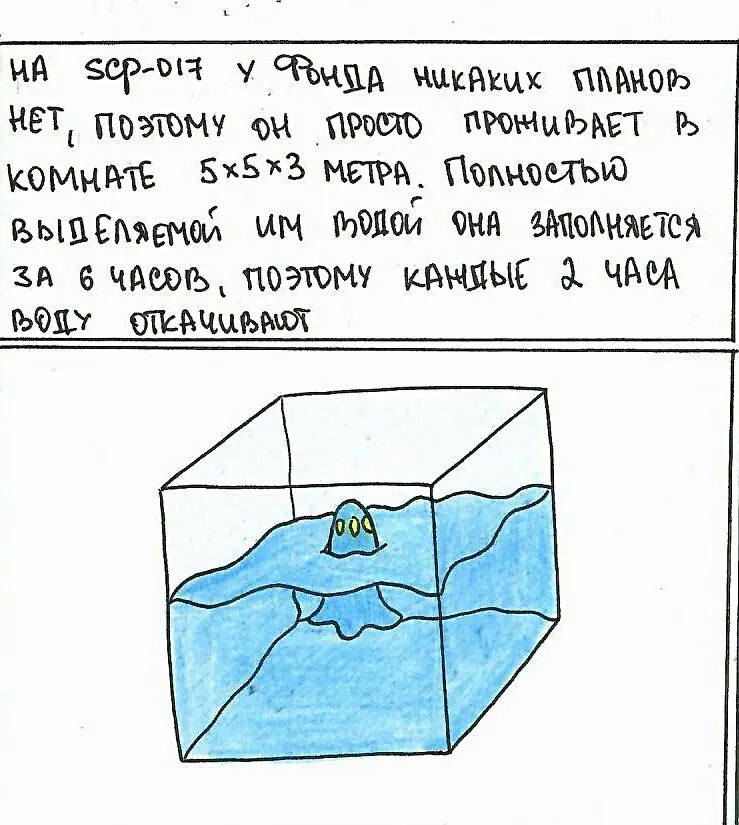 НА SCP-017 У ФОНДА НИКАКИХ ПЛАНОВ
НЕТ, ПОЭТОМУ ОН ПРОСТО ПРОЖИВАЕТ В
КОМНАТЕ 5×5×3 МЕТРА. ПОЛНОСТЬЮ
ВЫДЕЛЯЕМОЙ ИМ ВОДОЙ ОНА ЗАПОЛНЯЕТСЯ
ЗА 6 ЧАСОВ, ПОЭТОМУ КАЖДЫЕ 2 ЧАСА
ВОДУ ОТКАЧИВАЮТ